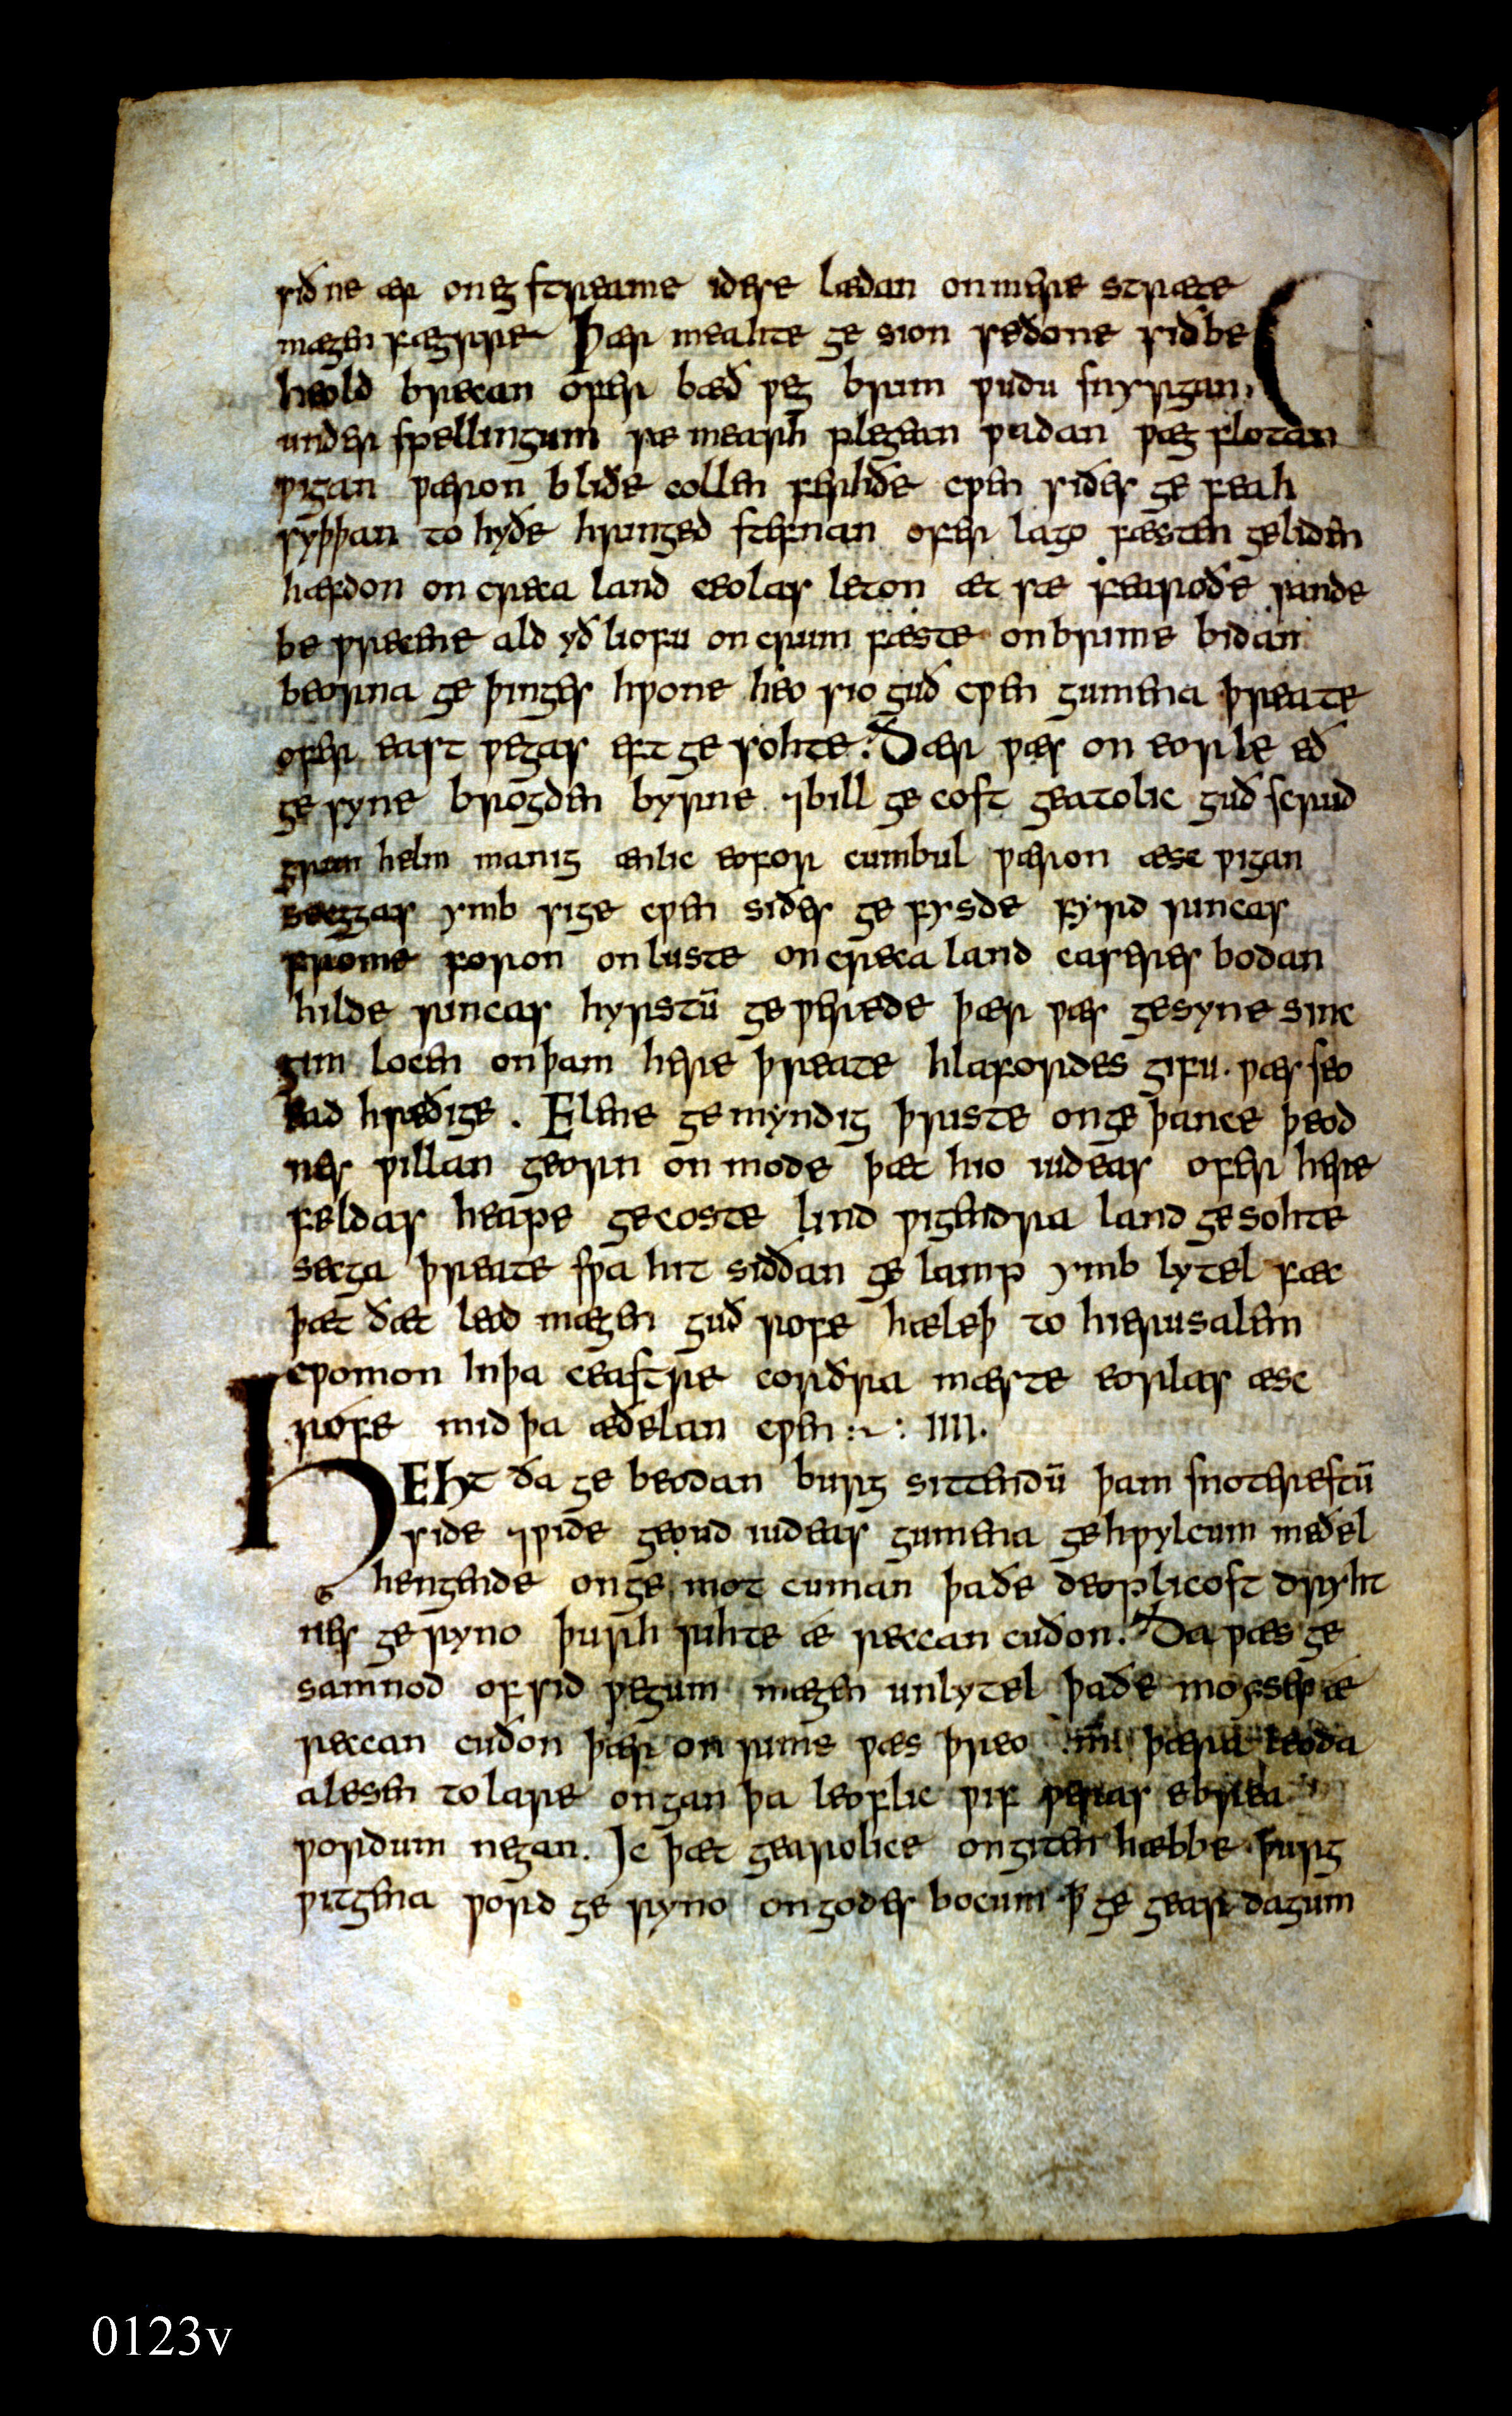 sið ne ær on eg streame idese lædan on mere stræte
mægen fægrre þær meahte ge sion seðone sið be
heold brecan ofer bæð ƿeg brim ƿudu snyrgan
under sƿellingum sæ mearh plegean ƿadan ƿæg flotan
ƿigan ƿæron bliðe collen ferhðe cƿen siðes ge feah
syþþan to hyðe hringed stefnan ofer lago fæsten geliden
hæfdon on creca land ceolas leton æt sæ fearoðe sande
be ƿrecene ald yð hofu on crum fæste on brime bidan
beorna ge þinges hƿone heo sio guð cƿen gumena þreate
ofer east ƿegas eft ge sohte. Ðær ƿæs on eorle eð
ge syne brogden byrne ⁊bill ge cost geatolic guð scrud
grim helm manig ænlic eofor cumbul ƿæron æsc ƿigan
secgas ymb sige cƿen siðes ge fysde fyrd rincas
frome foron on luste on creca land caseres bodan
hilde rincas hyrstū ge ƿerede þær ƿæs gesyne sinc
gim locen on þam here þreate hlafordes gifu. ƿæs seo
ead hreðige. Elene ge myndig þriste on ge þance þeod
nes ƿillan georn on mode þæt hio iudeas ofer here
feldas heape gecoste lind ƿigendra land gesohte
secga þreate sƿa hit siððan ge lamp ymb lytel fæc
þæt ðæt leod mægen guð rofe hæleþ to hierusalem
cƿomon In þa ceastre corðra mæste eorlas æsc
rófe mid þa æðelan cƿen :~: IIII.
HEht ða ge beodan burg sittendū þam snoterestū
side ⁊ƿide geond iudeas gumena gehƿylcum meðel
hengende on ge mot cuman þaðe deoplicost dryht
nes ge ryno þurh rihte ǽ reccan cuðon. Ða ƿæs ge
samnod of sid ƿegum mægen unlytel þaðe moyses ǽ
reccan cuðon þær on rime ƿæs þreo .m̄. þæra leoda
alesen to lare ongan þa leoflic ƿif ƿeras ebrea
ƿordum negan. Ic þæt gearolice ongiten hæbbe þurg
ƿitgena ƿord ge ryno on godes bocum ꝥ ge gear dagum
0123v